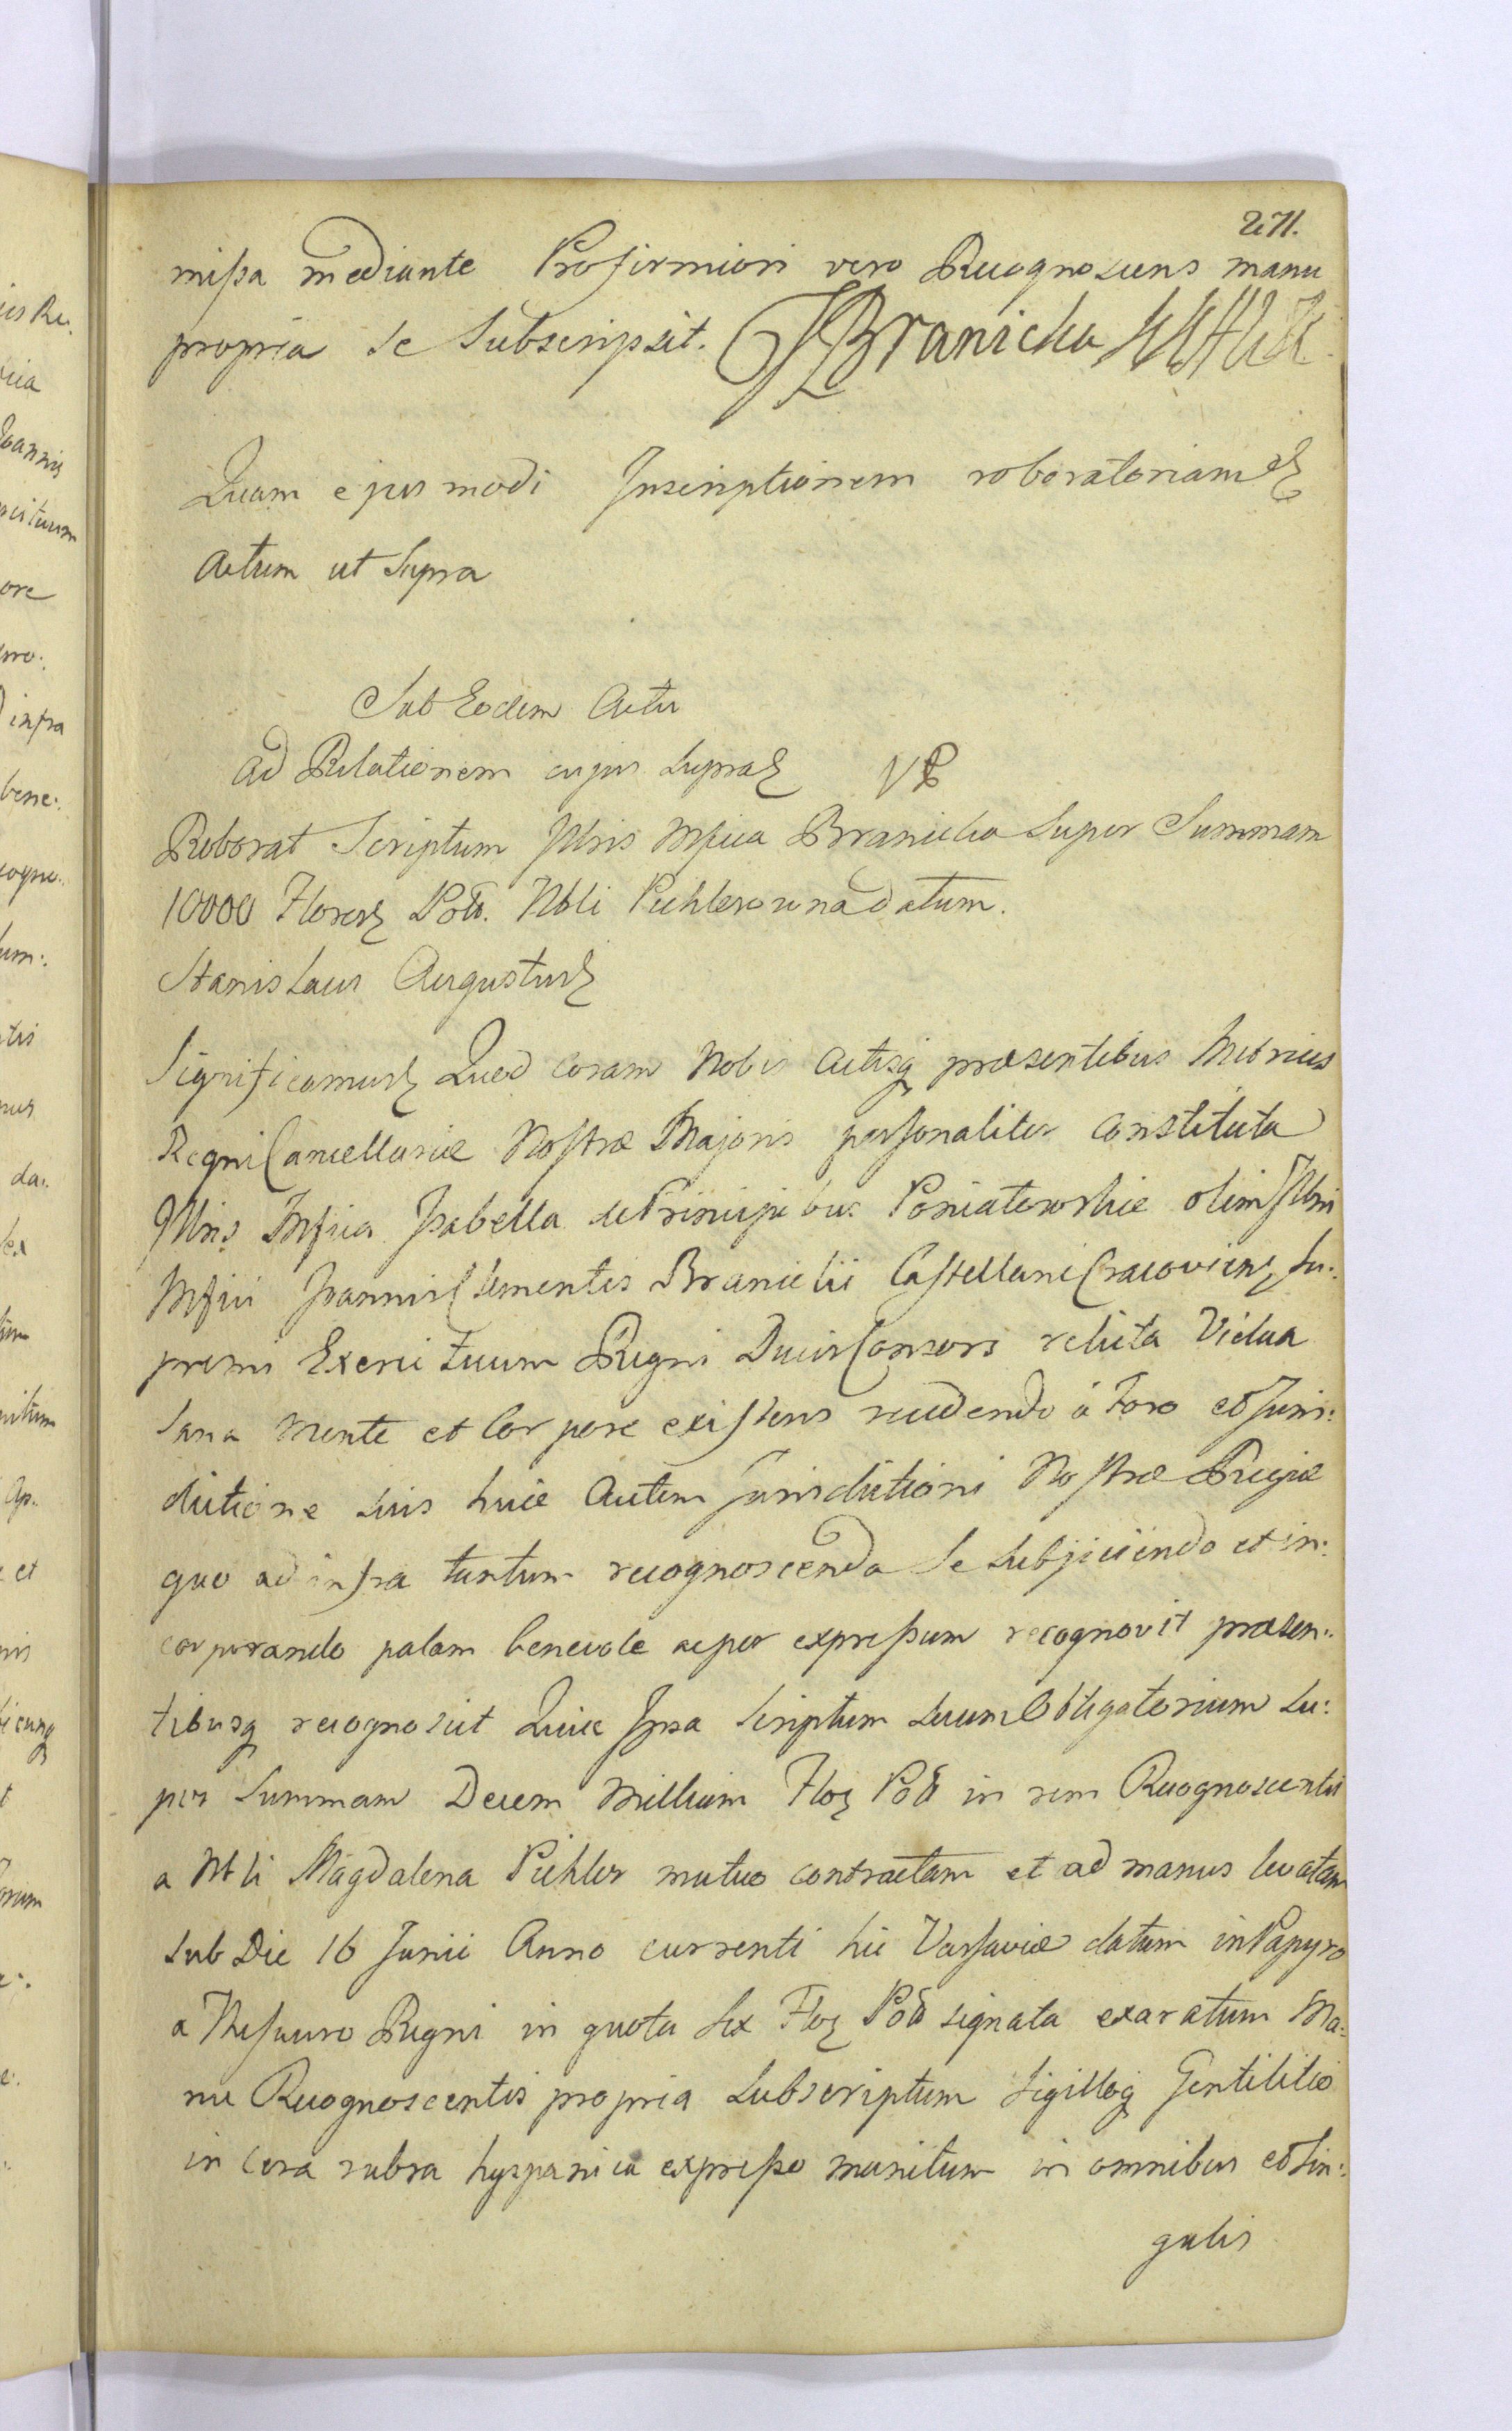 271.
mißa mediante Profirmiori vero Recognoscens manu
propria se Subscripsit. Branicka
Quam ejusmodi Inscriptionem roboratoriam
Actum ut Supra
Sub Eodem Actu
Ad Relationem cujus supra
Roborat Scriptum Illris Mfica Branicka super Summam
10000 Floren Pol. Nbli Pichlerowna datum.
Stanislaus Augustus
Significamus Quod coram Nobis Actisq praesentibus Metrices
Regni Cancellariae Nostrae Majoris personaliter constituta
Illris Mfica Isabella de Principibus Poniatowskie olim Illris
Mfici Joannis Clementis Branicki Castellani Cracovien, Su:
premi Exercituum Regni Ducis Consors relicta Vidua
sana mente et Corpore existens recedendo á Foro et Juris:
dictione suis huic Autem Jurisdictioni Nostrae Regiae
quo ad infra tantum recognoscenda se subjiciendo et in:
corporando palam benevole ac per expreßum recognovit praesen:
tibusq recognoscit Quia Ipsa Scriptum suum Obligatorium su:
per Summam Decem Millium Flor Pol in rem Recognoscentis
a Nbli Magdalena Pichler mutuo contractam et ad manus levatam
sub Die 16 Junii Anno currenti hic Varsaviae datum in Papyro
a Thesauro Regni in quota sex Flor Pol signata exaratum Ma:
nu Recognoscentis propria Subscriptum Sigilloq Gentilitio
in cera rubra hyspanica expreßo munitum in omnibus et Sin:
gulis